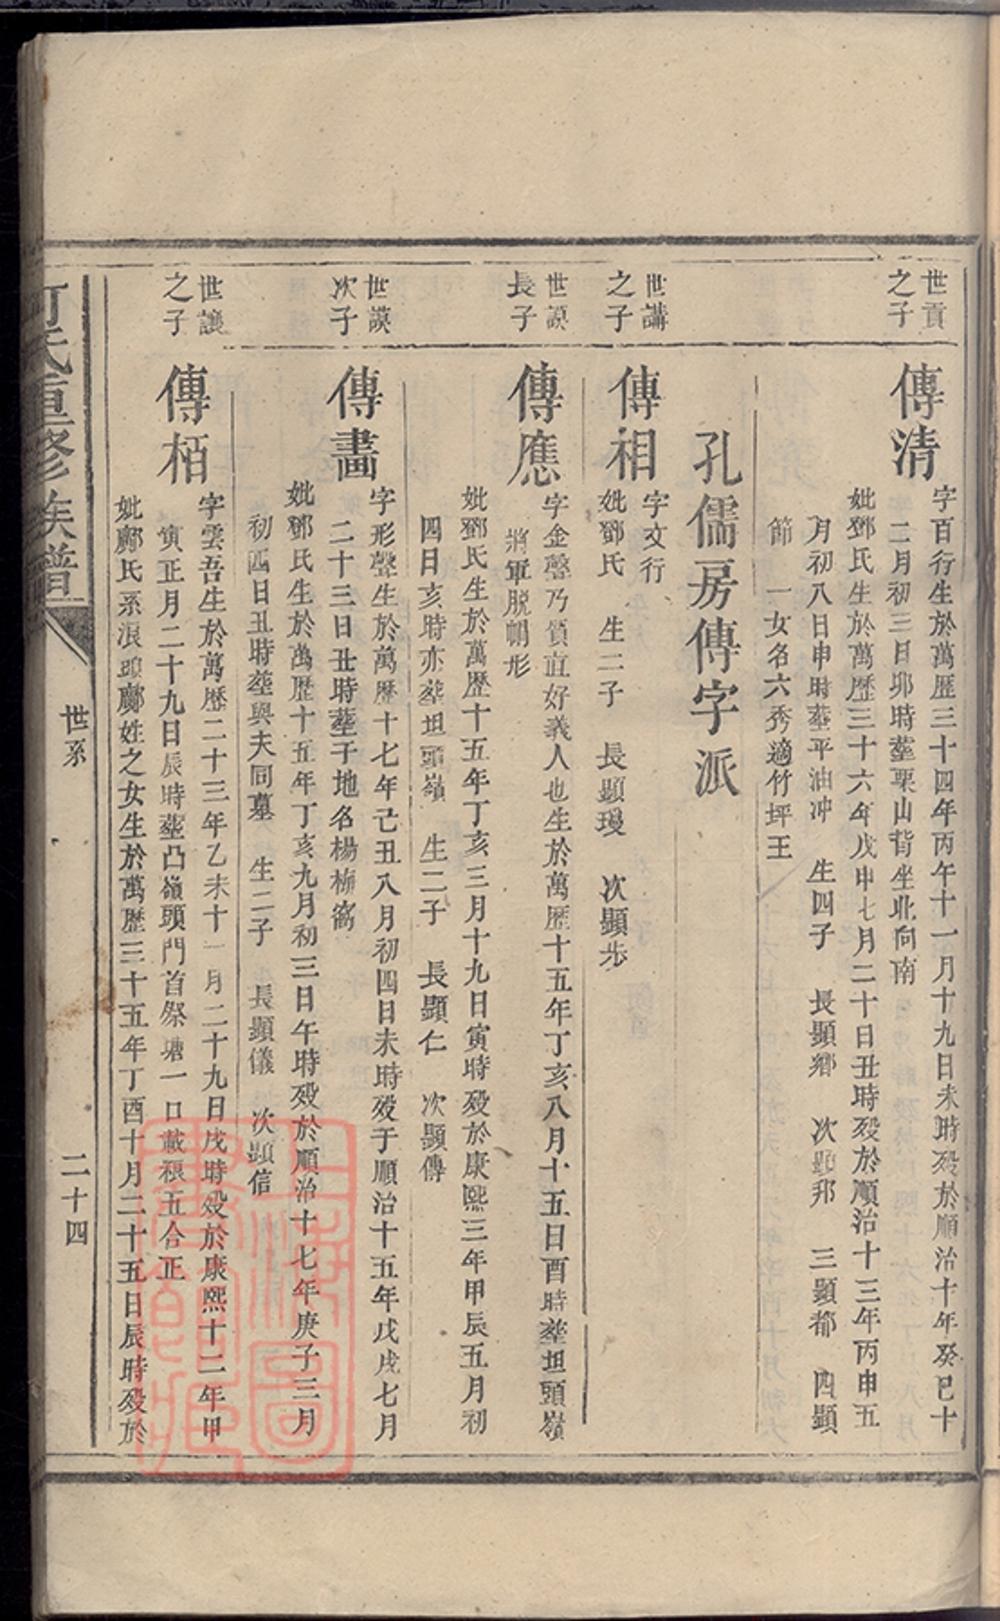 世貢
之子
傳清
字百行生於萬歷三十四年丙午十一月十九日未時殁於順治十年癸巳十
二月初三日卯時塟栗山背坐北向南
妣鄧氏生於萬歷三十六年戊申七月二十日丑時殁於順治十三年丙申五
月初八日申時塟平油冲 生四子 長顯鄉 次顯邦 三顯都 四顯
節 一女名六秀適竹坪王
孔儒房傳字派
世講
之子
傳相
字文行
妣鄧氏 生二子 長顯璦 次顯步
世謨
長子
傳應
字金聲乃質直好義人也生於萬歷十五年丁亥八月十五日酉時塟坦頭嶺
將軍脱帽形
妣鄧氏生於萬歷十五年丁亥三月十九日寅時殁於康熙三年甲辰五月初
四日亥時亦塟坦頭嶺 生二子 長顯仁 次顯傳
世謨
次子
傳畵
字形聲生於萬歷十七年己丑八月初四日未時殁于順治十五年戊戌七月
二十三日丑時塟于地名楊梅窩
妣鄧氏生於萬歷十五年丁亥九月初三日午時殁於順治十七年庚子三月
初四日丑時塟與夫同墓 生二子 長顯儀 次顯信
世讓
之子
傳栢
字雲吾生於萬歷二十三年乙未十一月二十九日戌時殁於康熙十二年甲
寅正月二十九日辰時塟凸嶺頭門首祭塘一口載粮五合正
妣鄺氏系浪頭鄺姓之女生於萬歷三十五年丁酉十月二十五日辰時殁於
何氏重修族譜
世系
二十四